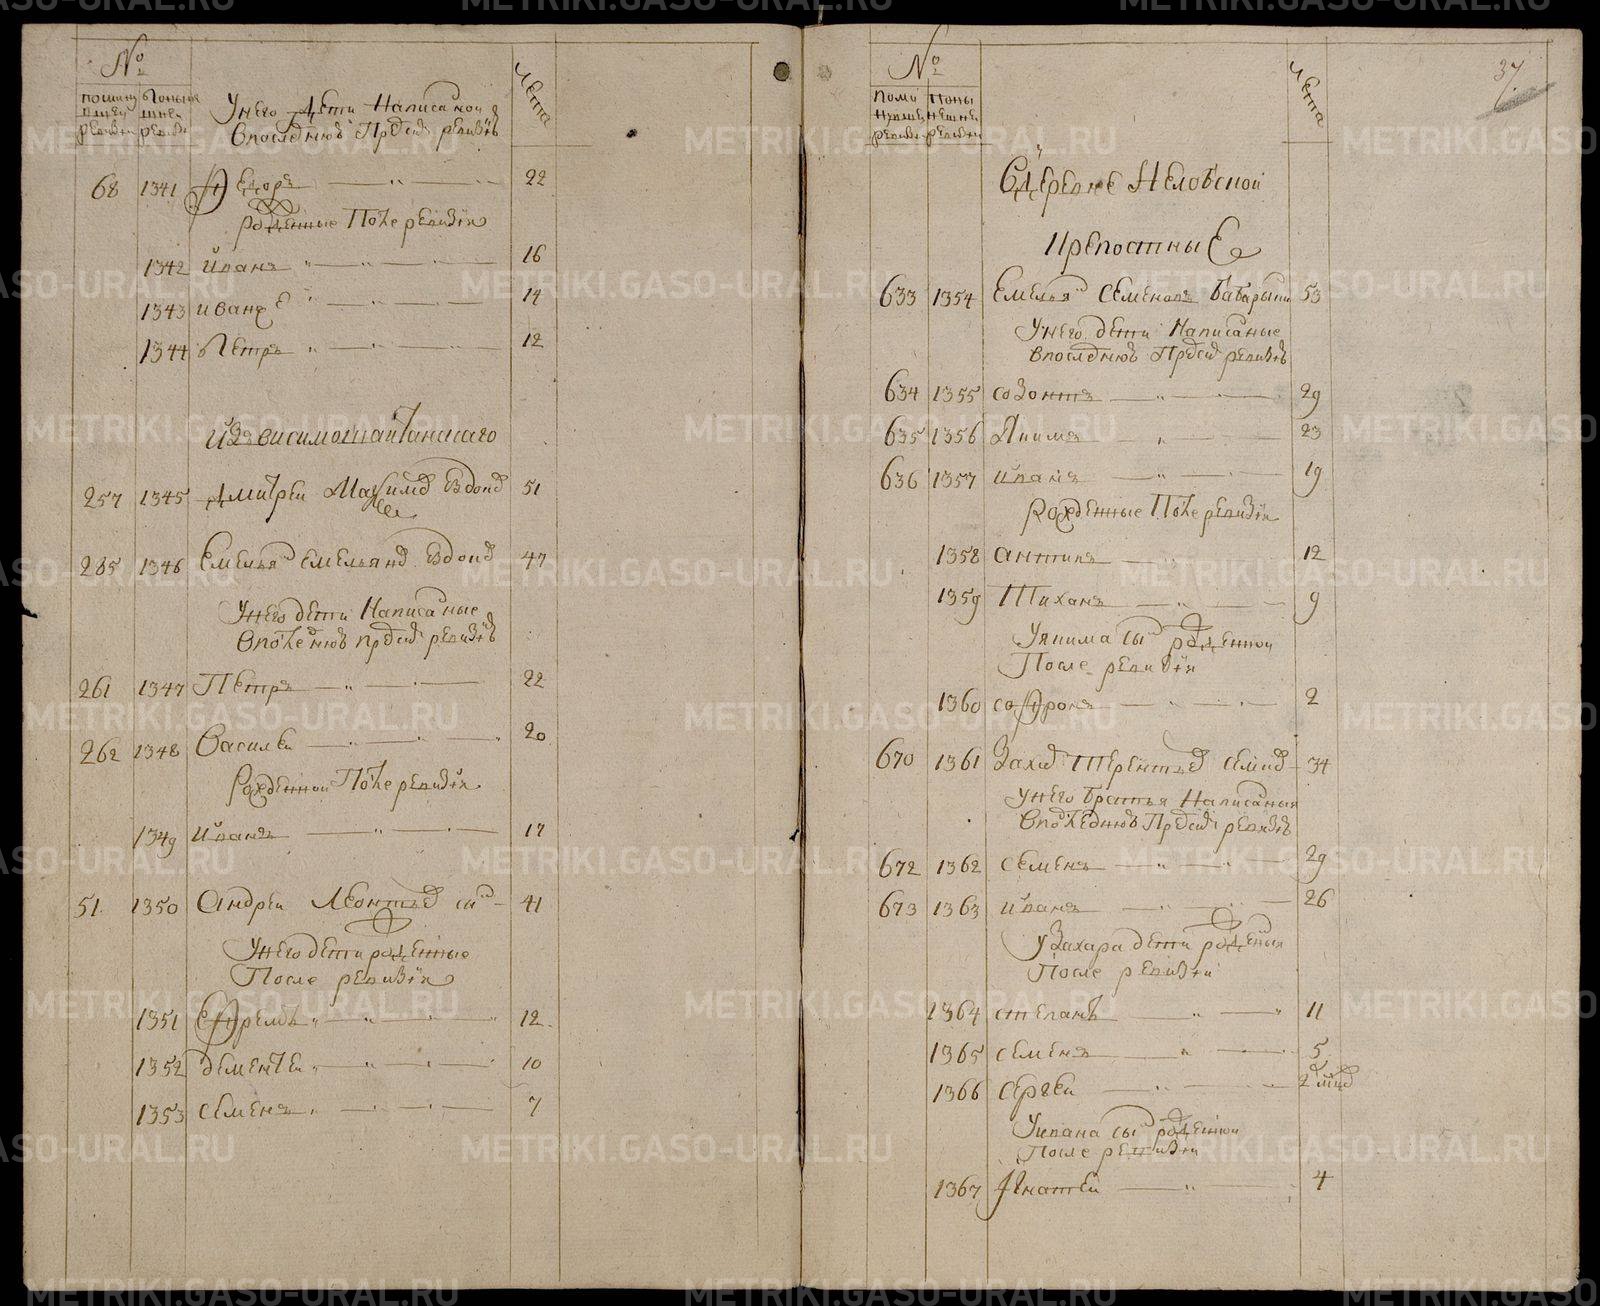 №
по мину
вшей
ревизи
по ныне
шней
ревизи
У него дети Написаной
в последнюю Пред сею ревизию
лета
68 1341 Федоръ 22
рожденные После ревизии
1342 иванъ 16
1343 иван же 14
1344 Петръ 12
257 1345 дмитреи Вдов 51
285 1346 Емельян емельянов Вдов 47
У него дети Написаные
в последнюю пред сею ревизию
261 1347 Петръ 22
262 1348 Василеи 20
Рожденнои После ревизии
1349 иванъ 17
51 1350 Андреи Леонтьев 41
У него дети рожденные
После ревизии
1351 Ефремъ 12
1352 дементеи 10
1353 семенъ 7
№
по ми
нувшей
ревизи
по ны
нешней
ревизи
лета
37
В деревне
Крепостные
633 1354 Емельян Семеновъ Бабарыкин 53
У него дети Написаные
в последнюю Пред сею ревизию
634 1355 созонтъ 29
635 1356 Якимъ 23
636 1357 иванъ 19
Рожденные После ревизии
1358 антипъ 12
1359 Тиханъ 9
У якима сын рожденнои
После ревизии
1360 софронъ 2
670 1361 Захар Терентьев 34
У него братья Написаныя
в последнюю Пред сею ревизию
672 1362 семенъ 29
673 1363 иванъ 26
у Захара дети рожденыя
После ревизии
1364 степанъ 11
1365 семенъ 5
1366 сергеи 2
У ивана сын рожденнои
После ревизии
1367 Игнатеи 4
METRIKI.GASO-URAL.RU